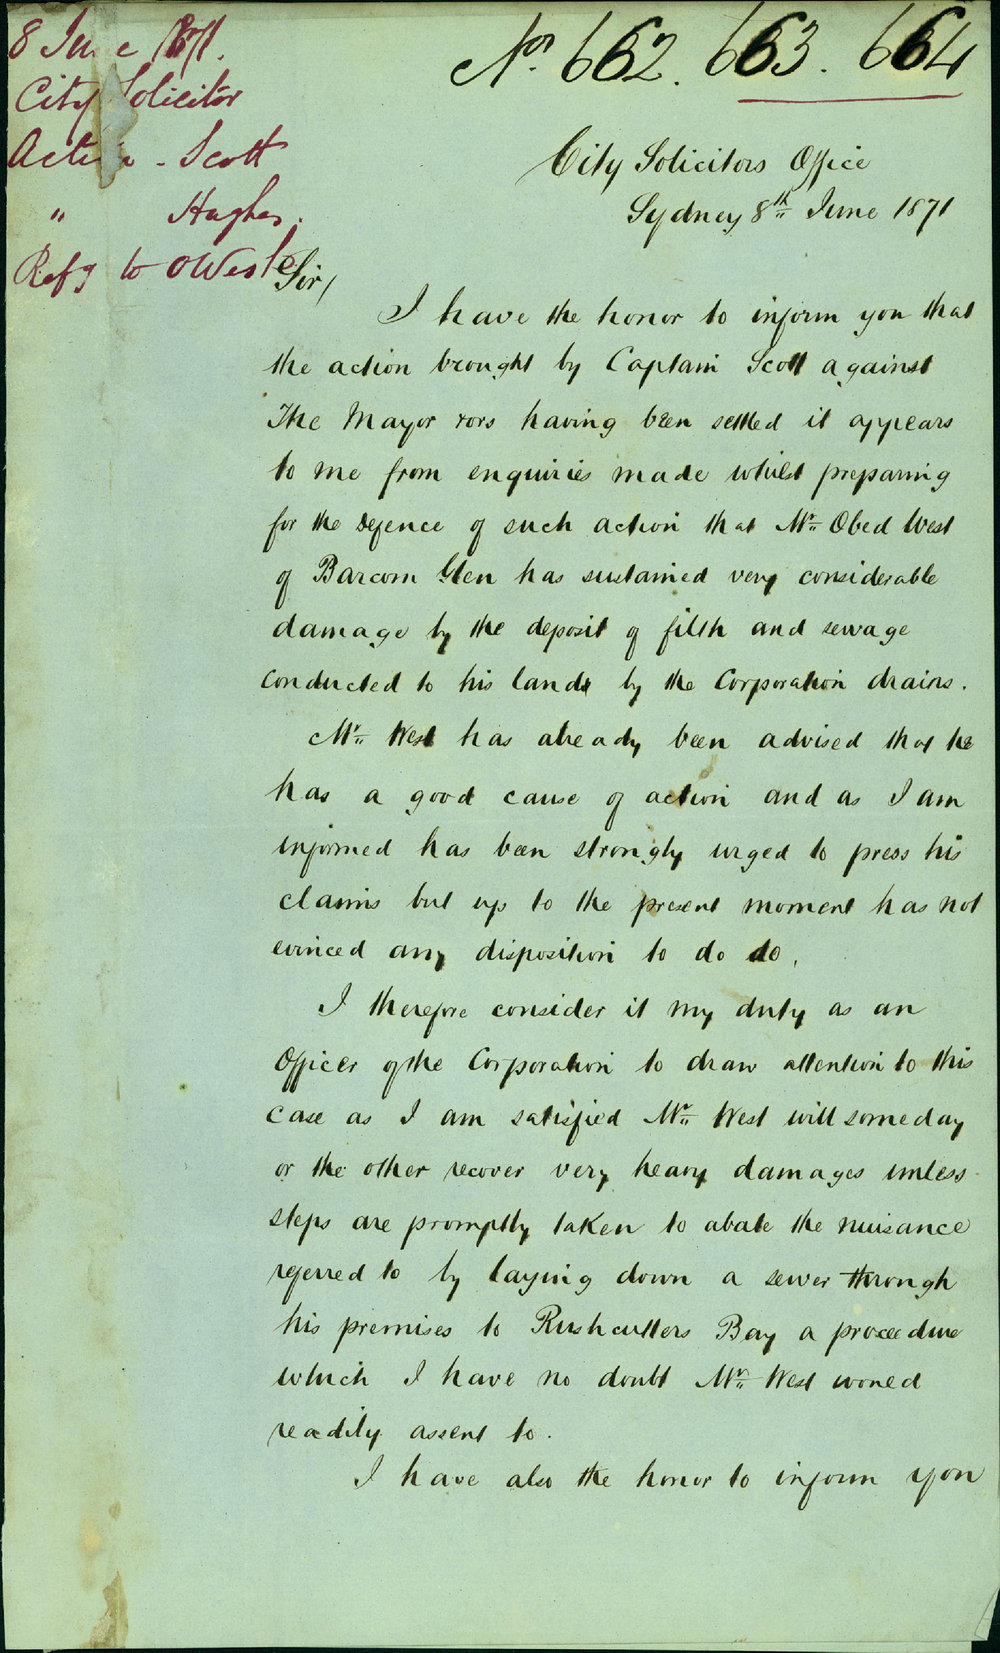 8 June 1871.
City Solicitor
Action - Scott
" Hughes.
Refg to O West
Nos. 662. 663. 664
City Solicitors Office
Sydney 8th June 1871
Sir/
I have the honor to inform you that
the action brought by Captain Scott against
The Mayor &ors having been settled it appears
to me from enquiries made whilst preparing
for the defence of such action that Mr. Obed West
of Barcom Glen has sustained very considerable
damage by the deposit of filth and sewage
conducted to his land by the Corporation drains.
Mr. West has already been advised that he
has a good cause of action and as I am
informed has been strongly urged to press his
claims but up to the present moment has not
evinced any disposition to do do.
I therefore consider it my duty as an
Officer of the Corporation to draw attention to this
case as I am satisfied Mr. West will some day
or the other recover very heavy damages unless
steps are promptly taken to abate the nuisance
referred to by laying down a sewer through
his premises to Rushcutters Bay a proceedure
which I have no doubt Mr. West woued
readily assent to.
I have also the honor to inform you